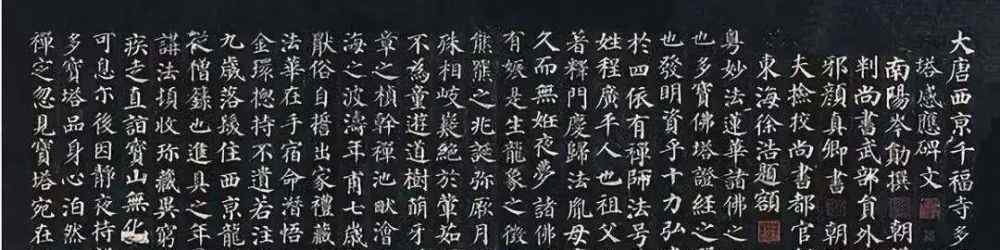 大唐西京千福寺多
塔感應碑文
南陽岑勛撰 朝
判尚書武部員外
邪顏真卿書 朝
夫撿挍尚書都官
東海徐浩題額
粵妙法蓮華諸佛之
也多寶佛塔證經之
也發明資乎十力弘
於四依有禪師法号
姓程廣平人也祖父
著釋門慶歸法胤母
久而無姙夜夢諸佛
有娠是生龍象之徵
熊羆之兆誕弥厥月
殊相岐嶷絕於葷茹
不為童遊道樹萌牙
章之楨幹禪池畎澮
海之波濤年甫七歲
猒俗自誓出家禮藏
法華在手宿命潛悟
金環揔持不遺若注
九歲落髮住西京龍
從僧籙也進具之年
講法頓收珎藏異窮
疾走直詣寶山無化
可息尒後因靜夜持
多寶塔品身心泊然
禪定忽見寶塔宛在